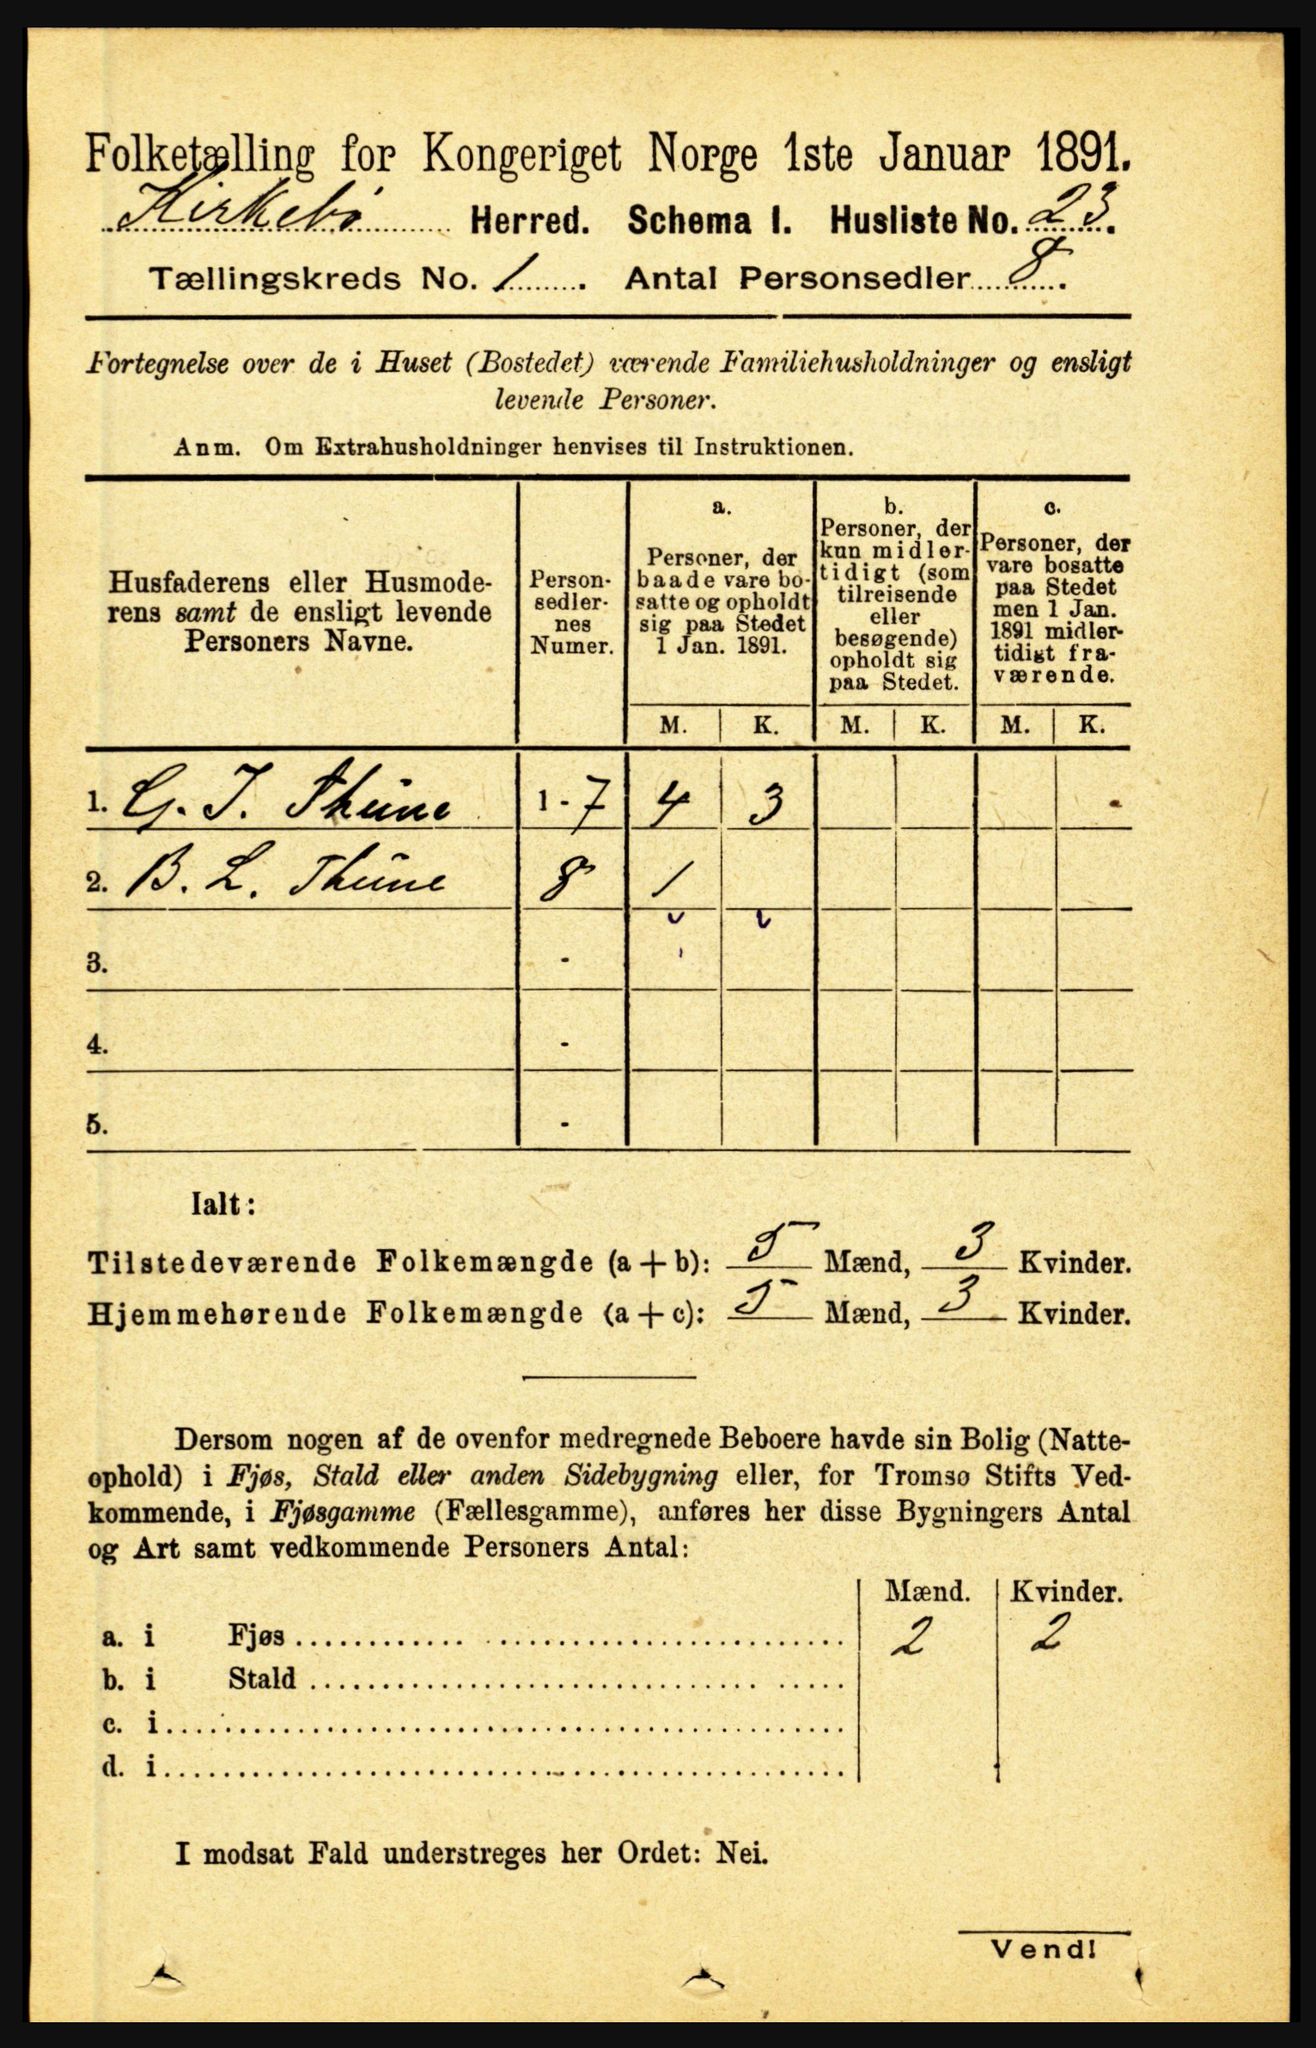 Folketælling for Kongeriget Norge 1ste Januar 1891.
Kirkebø Herred. Schema I. Husliste No. 23.
Tællingskreds No. 1. Antal Personsedler 8.
Fortegnelse over de i Huset (Bostedet) værende Familiehusholdninger og ensligt
levende Personer.
Anm. Om Extrahusholdninger henvises til Instruktionen.
Husfaderens eller Husmode-
rens samt de ensligt levende
Personers Navne.
Person-
sedler-
nes
Numer.
a.
Personer, der
baade vare bo-
satte og opholdt
sig paa Stedet
1 Jan. 1891.
b.
Personer, der
kun midler-
tidigt (som
tilreisende
eller
besøgende)
opholdt sig
paa Stedet.
c.
Personer, der
vare bosatte
paa Stedet
men 1 Jan.
1891 midler-
tidigt fra-
værende.
M. K. M. K. M. K.
1. G. I. Thüne 1 - 7 4 3
2. B. L. Thüne 8 1
3. -
4. -
5. -
Ialt:
Tilstedeværende Folkemængde (a + b): 5 Mænd, 3 Kvinder.
Hjemmehørende Folkemængde (a + c): 5 Mænd, 3 Kvinder.
Dersom nogen af de ovenfor medregnede Beboere havde sin Bolig (Natte-
ophold) i Fjøs, Stald eller anden Sidebygning eller, for Tromsø Stifts Ved-
kommende, i Fjøsgamme (Fællesgamme), anføres her disse Bygningers Antal
og Art samt vedkommende Personers Antal:
Mænd. Kvinder.
a. i Fjøs 2 2
b. i Stald
c. i
d. i
I modsat Fald understreges her Ordet: Nei.
Vend!